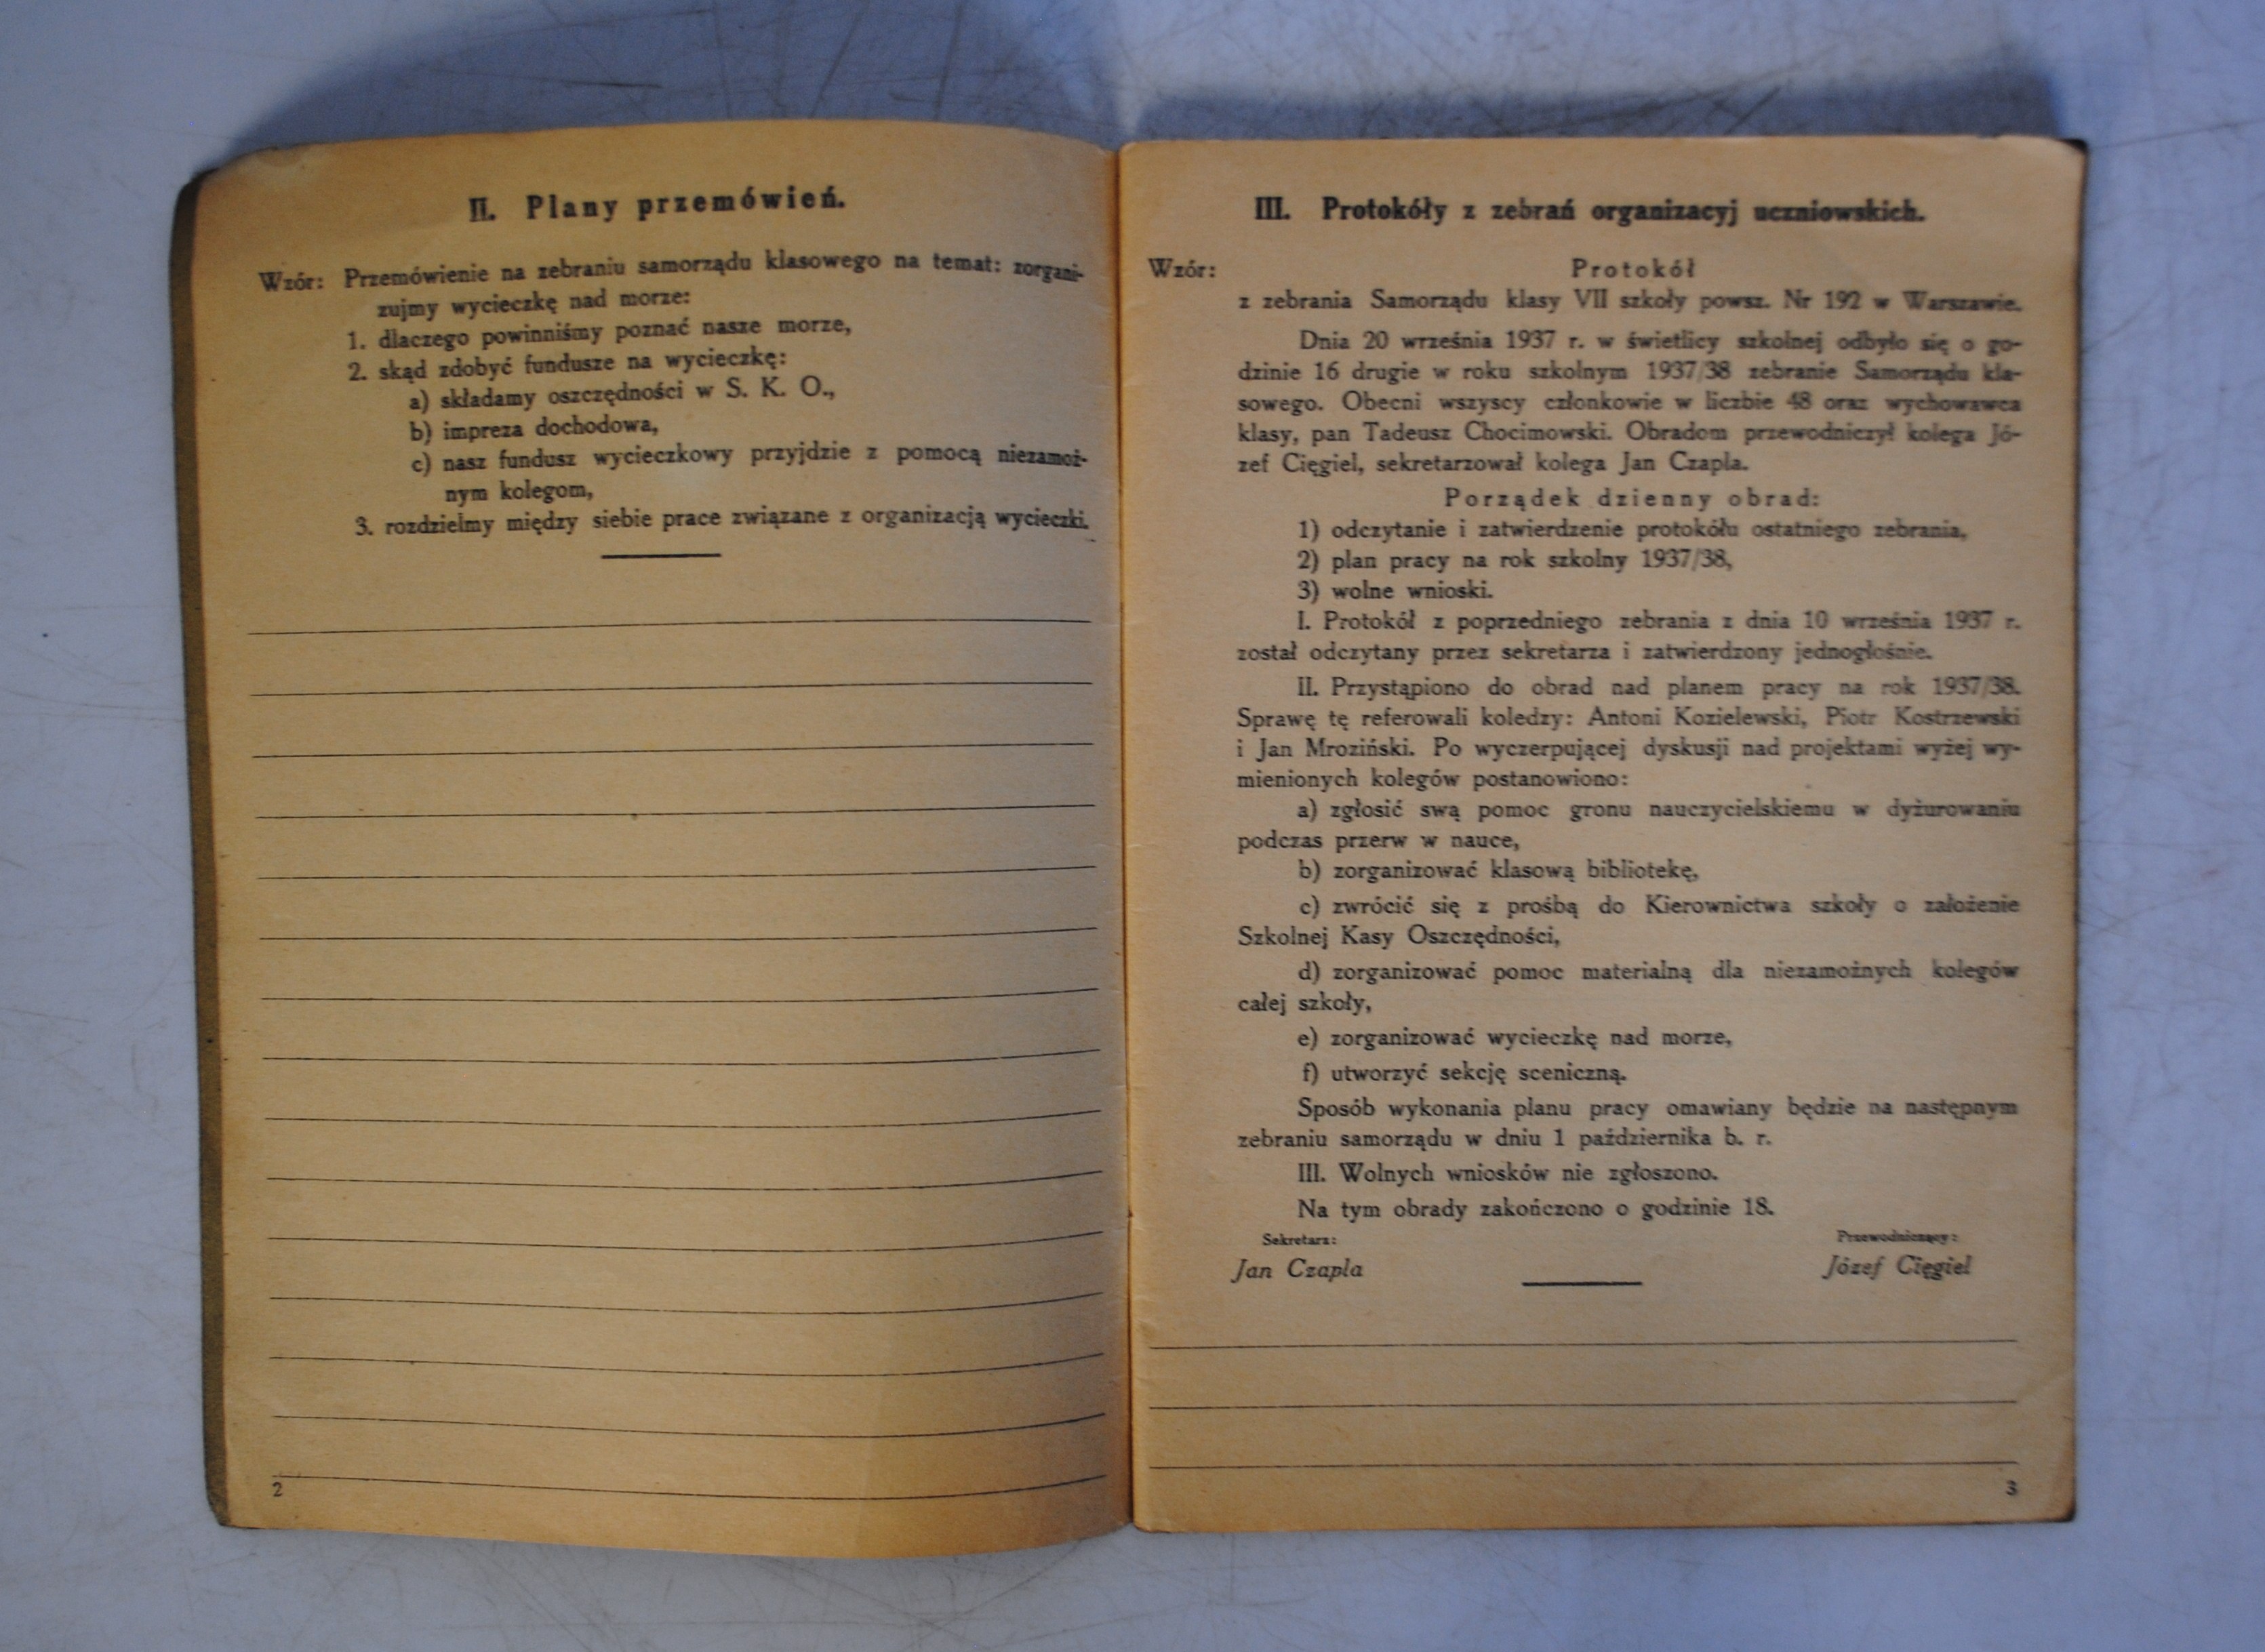 II. Plany przemówień.
Wzór: Przemówienie na zebraniu samorządu klasowego na temat: zorgani-
zujmy wycieczkę nad morze:
1. dlaczego powinniśmy poznać nasze morze,
2. skąd zdobyć fundusze na wycieczkę:
a) składamy oszczędności w S. K. O.,
b) impreza dochodowa,
c) nasz fundusz wycieczkowy przyjdzie z pomocą niezamoż-
nym kolegom,
3. rozdzielmy między siebie prace związane z organizacją wycieczki.
2
III. Protokóły z zebrań organizacyj uczniowskich.
Wzór: Protokół
z zebrania Samorządu klasy VII szkoły powsz. Nr 192 w Warszawie.
Dnia 20 września 1937 r. w świetlicy szkolnej odbyło się o go-
dzinie 16 drugie w roku szkolnym 1937/38 zebranie Samorządu kla-
sowego. Obecni wszyscy członkowie w liczbie 48 oraz wychowawca
klasy, pan Tadeusz Chocimowski. Obradom przewodniczył kolega Jó-
zef Cięgiel, sekretarzował kolega Jan Czapla.
Porządek dzienny obrad:
1) odczytanie i zatwierdzenie protokółu ostatniego zebrania,
2) plan pracy na rok szkolny 1937/38,
3) wolne wnioski.
I. Protokół z poprzedniego zebrania z dnia 10 września 1937 r.
został odczytany przez sekretarza i zatwierdzony jednogłośnie.
II. Przystąpiono do obrad nad planem pracy na rok 1937/38.
Sprawę tę referowali koledzy: Antoni Kozielewski, Piotr Kostrzewski
i Jan Mroziński. Po wyczerpującej dyskusji nad projektami wyżej wy-
mienionych kolegów postanowiono:
a) zgłosić swą pomoc gronu nauczycielskiemu w dyżurowaniu
podczas przerw w nauce,
b) zorganizować klasową bibliotekę,
c) zwrócić się z prośbą do Kierownictwa szkoły o założenie
Szkolnej Kasy Oszczędności,
d) zorganizować pomoc materialną dla niezamożnych kolegów
całej szkoły,
e) zorganizować wycieczkę nad morze,
f) utworzyć sekcję sceniczną.
Sposób wykonania planu pracy omawiany będzie na następnym
zebraniu samorządu w dniu 1 października b. r.
III. Wolnych wniosków nie zgłoszono.
Na tym obrady zakończono o godzinie 18.
Sekretarz: Przewodniczący:
Jan Czapla Józef Cięgiel
3